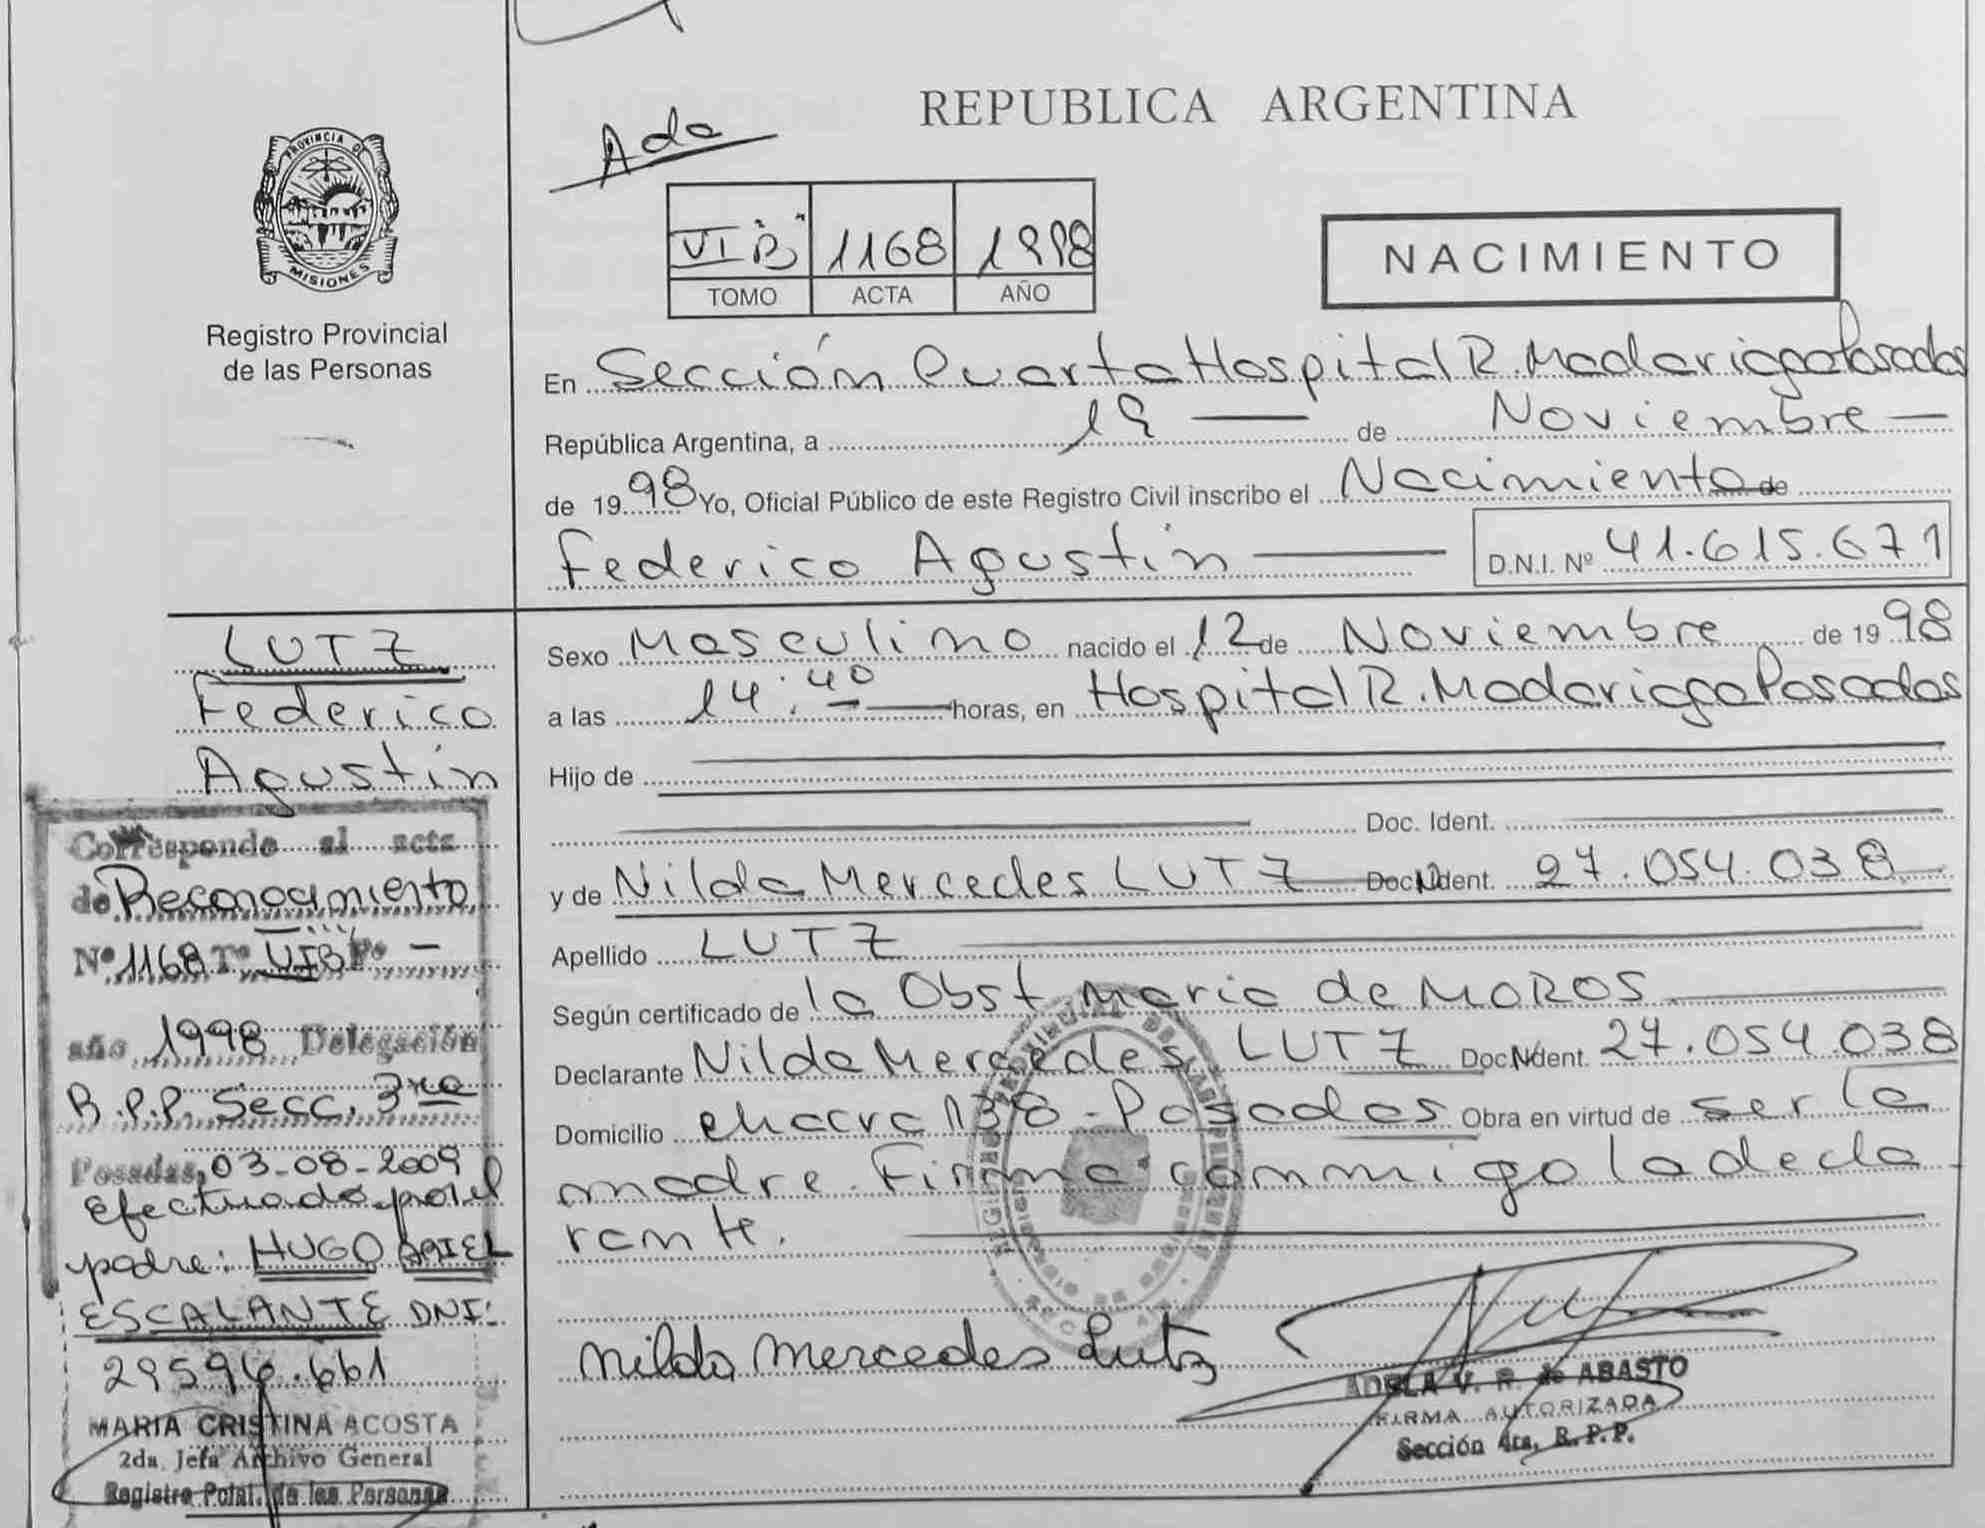 REPUBLICA ARGENTINA
Ada
PROVINCIA DE
MISIONES
Registro Provincial
de las Personas
VI "B" 1168 1998
TOMO ACTA AÑO
NACIMIENTO
En Sección Cuarta Hospital R. Madariaga Posadas
República Argentina, a 19 de Noviembre
de 1998 Yo, Oficial Público de este Registro Civil inscribo el Nacimiento de
Federico Agustín D.N.I. Nº 41.615.671
LUTZ
Federico
Agustín
Sexo Masculino nacido el 12 de Noviembre de 1998
a las 14:40 horas, en Hospital R. Madariaga Posadas
Hijo de
Doc. Ident.
y de Nilda Mercedes LUTZ Doc. Ident. 27.054.038
Apellido LUTZ
Según certificado de la Obst. maria de MOROS
Declarante Nilda Mercedes LUTZ Doc. Ident. 27.054.038
Domicilio chacra 138 - Posadas Obra en virtud de ser la
madre. Firma conmigo la decla
rante.
nilda mercedes Lutz
ADELA V. R. de ABASTO
FIRMA AUTORIZADA
Sección 4ta. R. P. P.
Corresponde al acta
de Reconocimiento
Nº 1168 Tº VI"B" Fº -
año 1998 Delegación
R.P.P. Secc. 3ra
Posadas, 03-08-2009
Efectuado por el
padre: HUGO ARIEL
ESCALANTE DNI:
29596.661
MARIA CRISTINA ACOSTA
2da. Jefa Archivo General
Registro Pcial. de las Personas